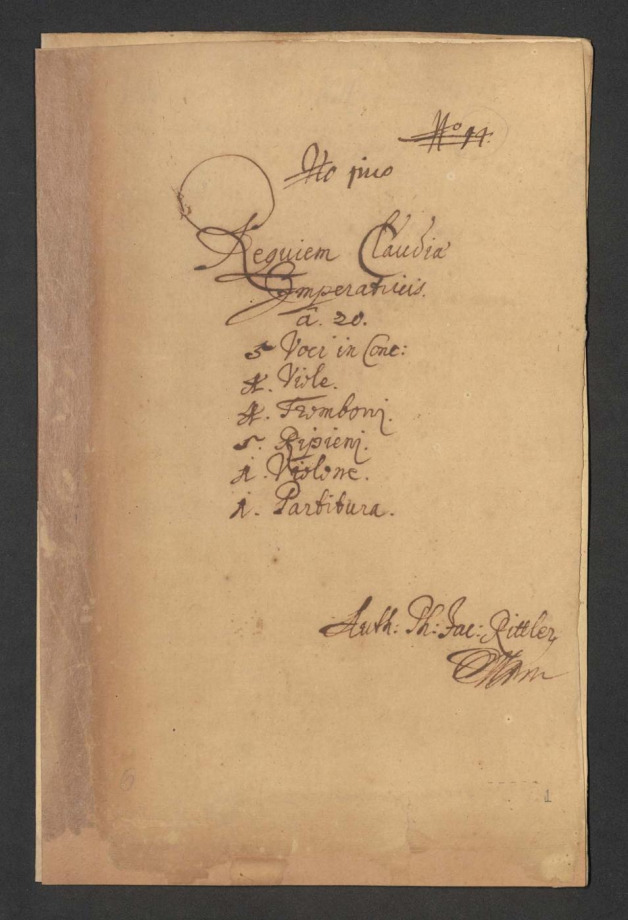 No 11.
No
Requiem Claudiæ
Imperatricis.
â. 20.
5 Voci in Conc:
4. Viole.
4. Tromboni.
5. Ripieni.
1. Violone.
1. Partitura.
Auth: Ph: Jac: Rittler
6
1